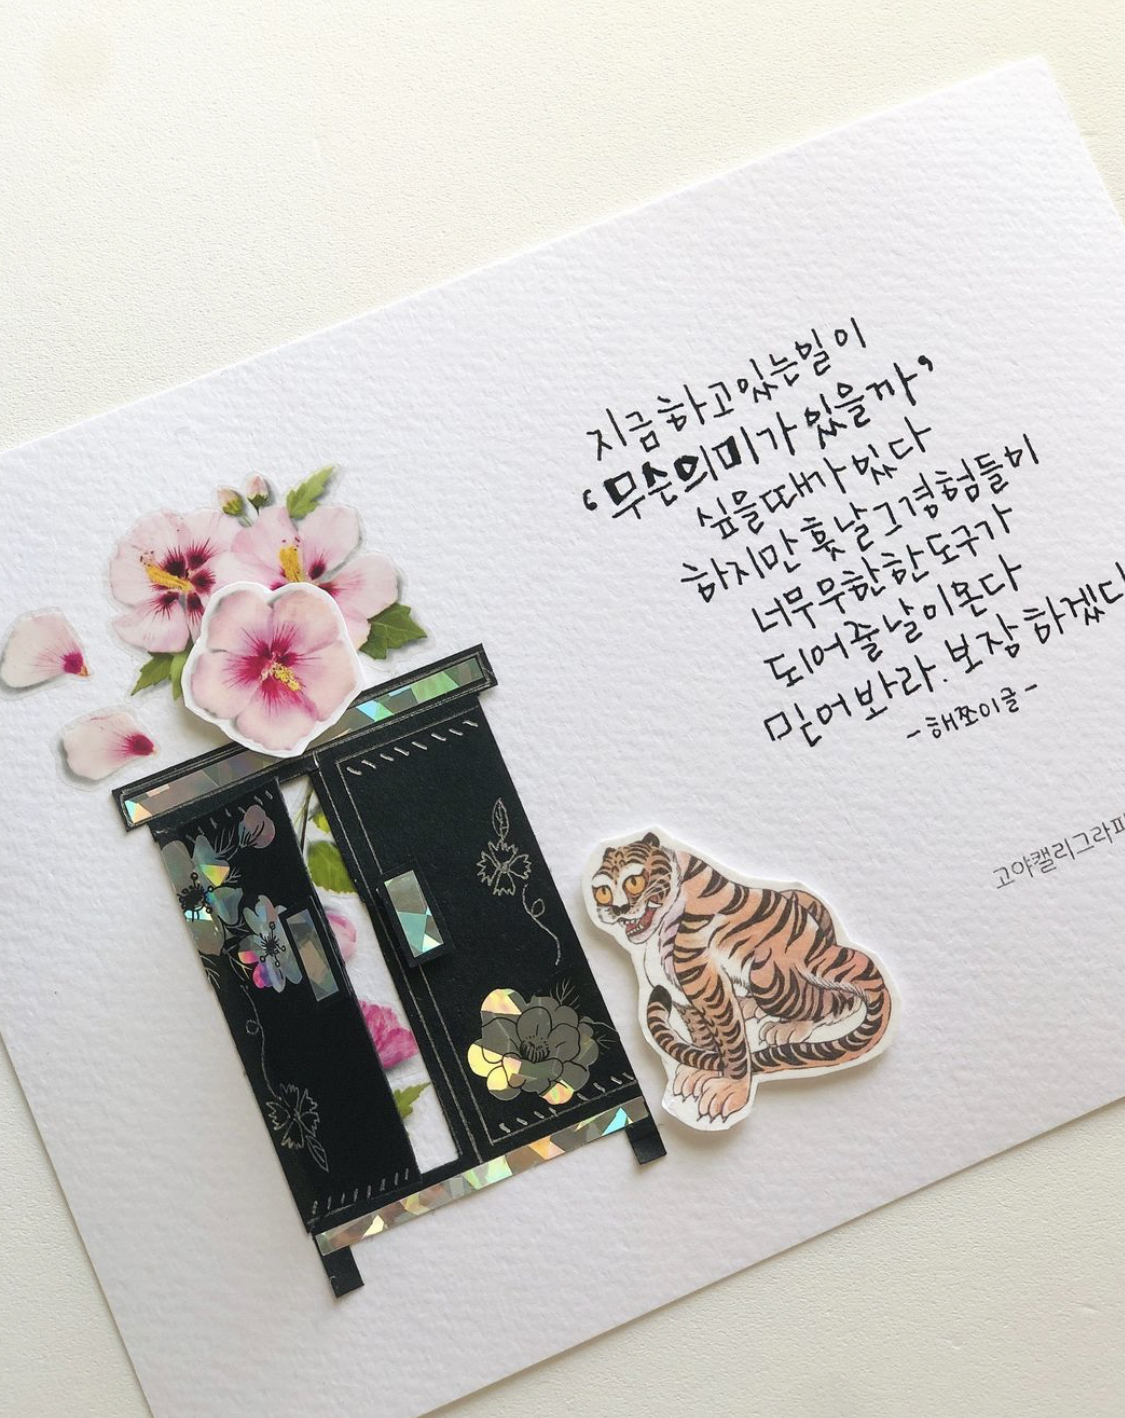 지금 하고있는일이
'무슨의미가 있을까'
싶을때가 있다
하지만 훗날 그 경험들이
너무 무한한 도구가
되어줄날이온다
믿어봐라. 보장하겠다
-해쪼이글-
고야캘리그라피